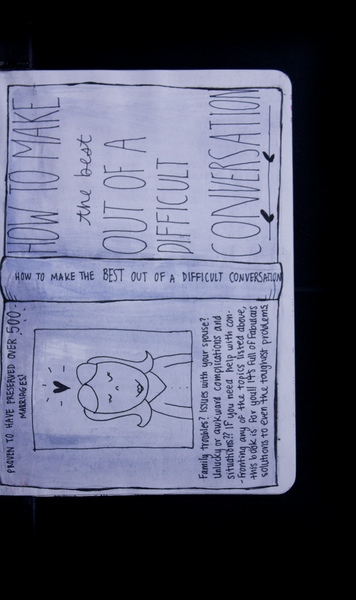 HOW TO MAKE
the best
OUT OF A
DIFFICULT
CONVERSATION
HOW TO MAKE THE BEST OUT OF A DIFFICULT CONVERSATION
PROVEN TO HAVE PRESERVED OVER 500
MARRIAGES!
Family troubles? Issues with your spouse?
Unlucky or awkward complications and
situations?? If you need help with con-
-fronting any of the topics listed above,
this book is for you!! It's full of fabulous
solutions to even the toughest problems